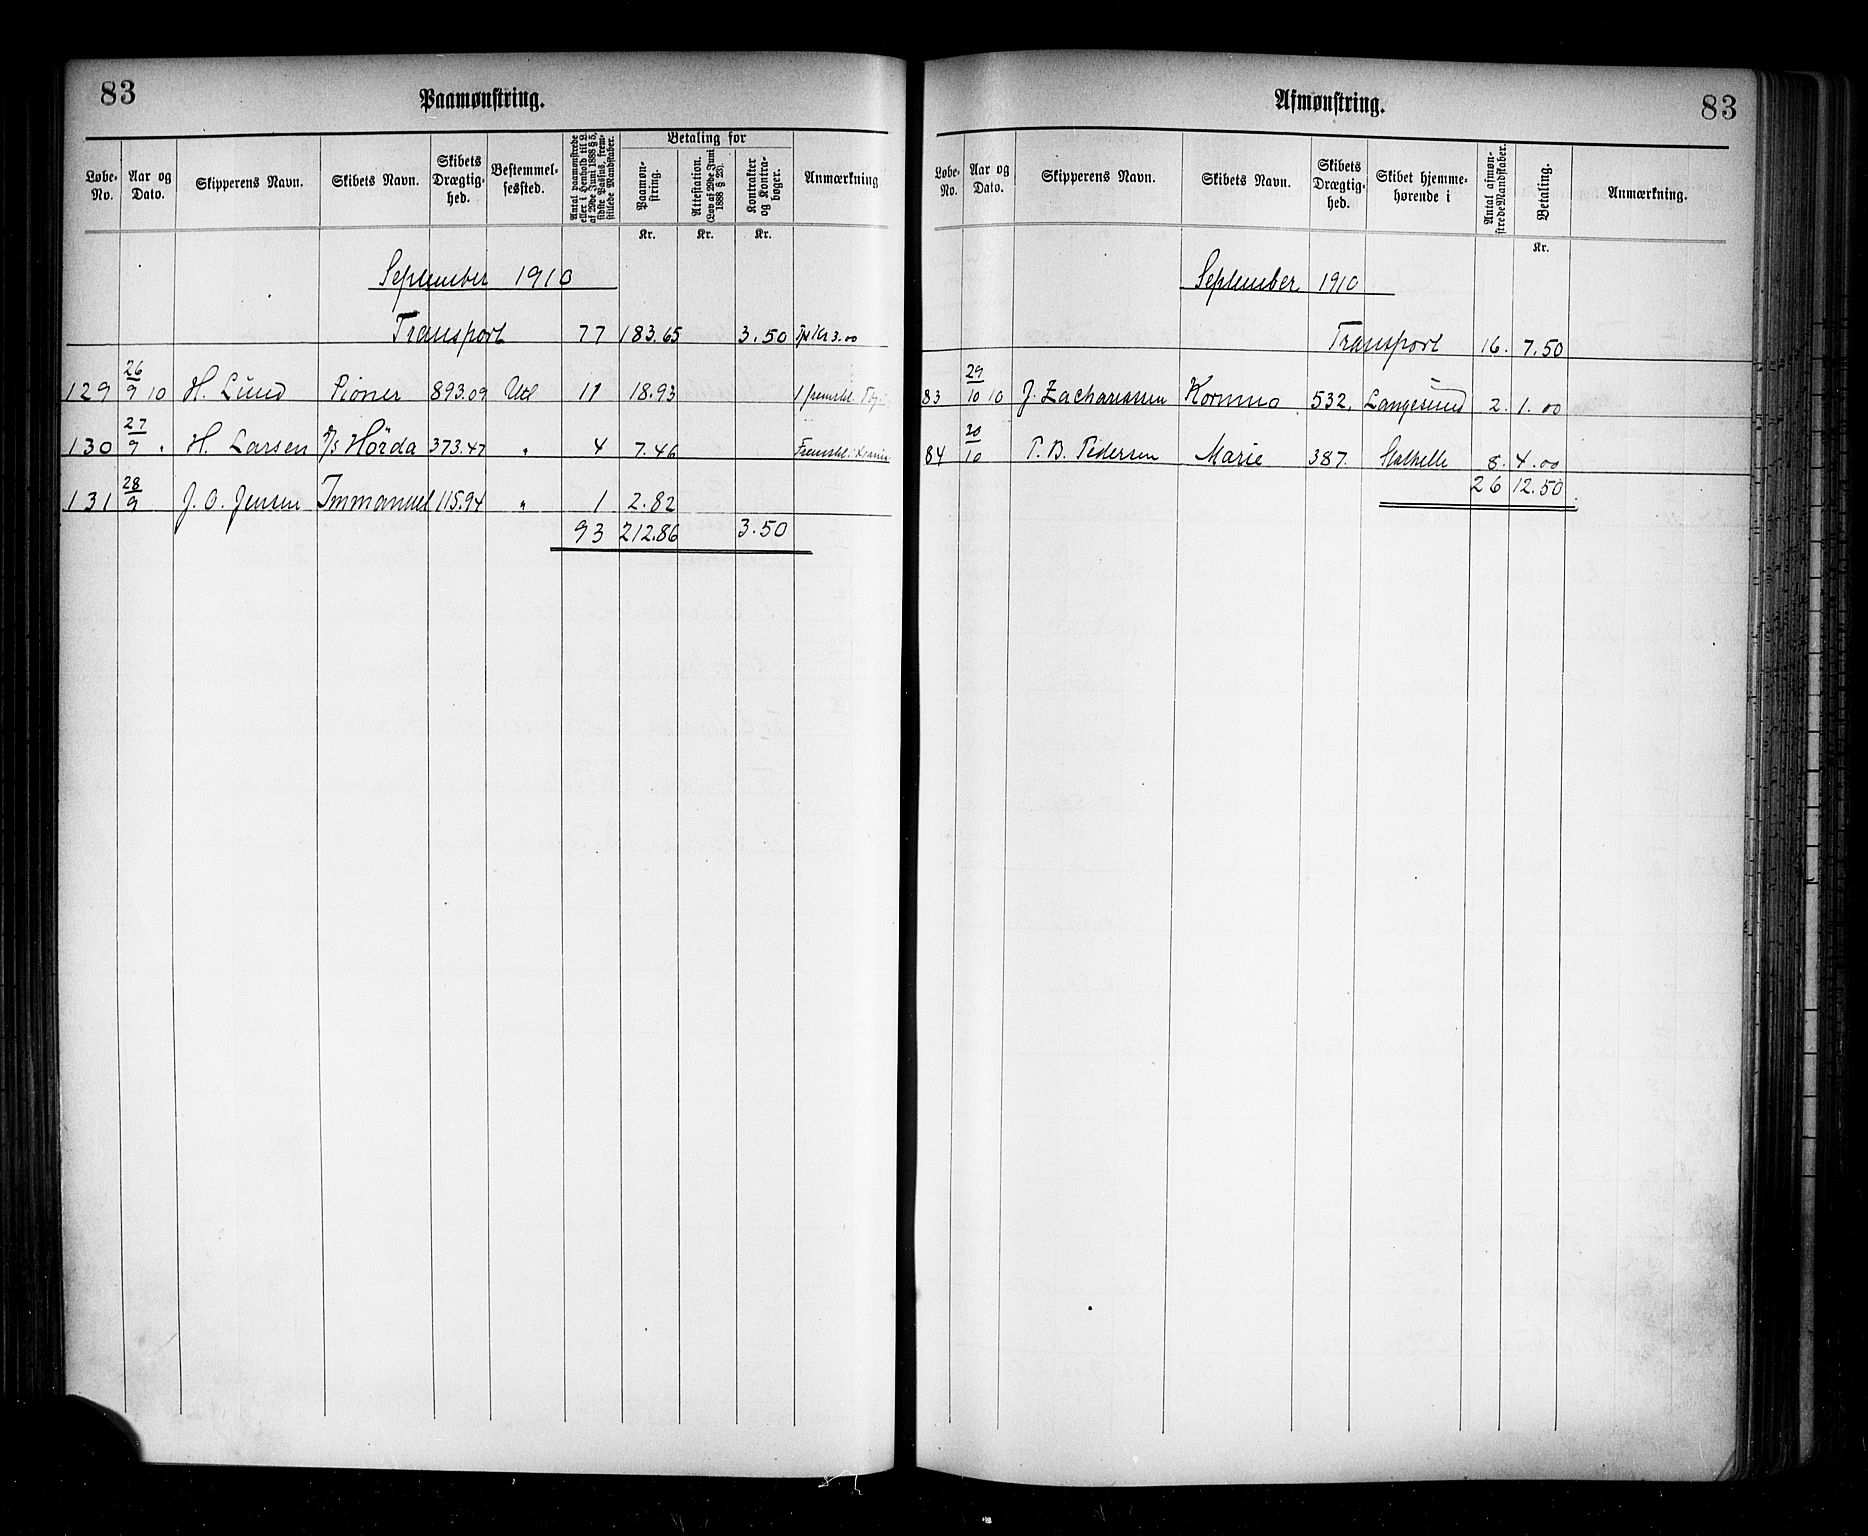 83
Paamønstring.
Løbe-No.
Aar og Dato.
Skipperens Navn.
Skibets Navn.
Skibets Drægtig-hed.
Bestemmel-sessted.
Antal paamønstrede eller i Henhold til L. af 29de Juni 1888 § 5, sidste Passus, frem-stillede Mandskaber.
Betaling for
Paamøn-string.
Attestation. (Lov af 29de Juni 1888 § 23).
Kontrakter og Kontra-bøger.
Anmærkning
Kr. Kr. Kr.
September 1910
Transport 77 183.65 3.50 Kr 3.00
129 26/9 10 H. Lund Pioner 893.09 Utl 11 18.93 1 fremstil.
130 27/9 " H. Larsen D/S Hörda 373.47 " 4 7.46 Fremstil.
131 28/9 J. O. Jensen Immanuel 115.94 " 1 2.82
93 212.86 3.50
Afmønstring.
83
Løbe-No.
Aar og Dato.
Skipperens Navn.
Skibets Navn.
Skibets Drægtig-hed.
Skibet hjemme-hørende i
Antal afmøn-strede Mandskaber.
Betaling.
Anmærkning.
Kr.
September 1910
Transport 16. 7.50
83 29/10 10 J. Zachariassen Kormmo 532. Langesund 2. 1.00
84 30/10 P. B. Pedersen Marie 387. Stathelle 8. 4.00
26 12.50